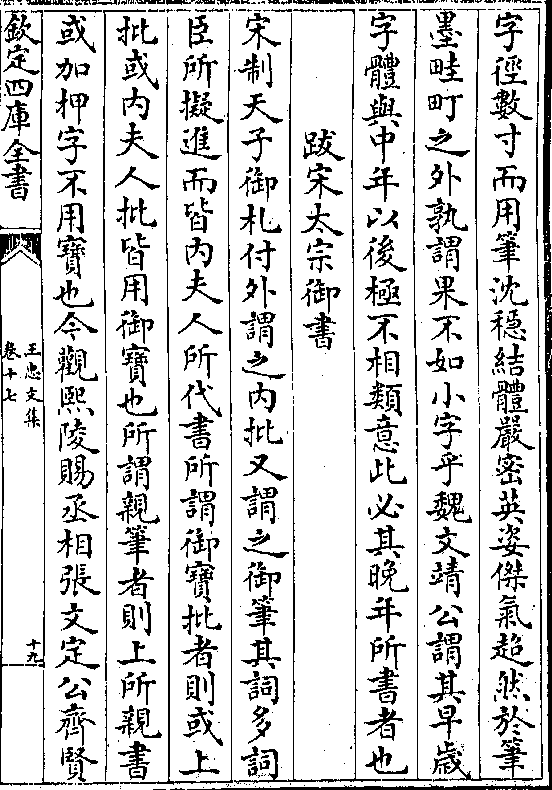 字徑數寸而用筆沈穩結體嚴密英姿傑氣超然於筆
墨畦町之外孰謂果不如小字乎魏文靖公謂其早歲
字體與中年以後極不相類意此必其晚年所書者也
跋宋太宗御書
宋制天子御札付外謂之內批又謂之御筆其詞多詞
臣所擬進而皆內夫人所代書所謂御寶批者則或上
批或內夫人批皆用御寶也所謂親筆者則上所親書
或加押字不用寶也今觀熙陵賜丞相張文定公齊賢
欽定四庫全書
王忠文集
卷十七
十九